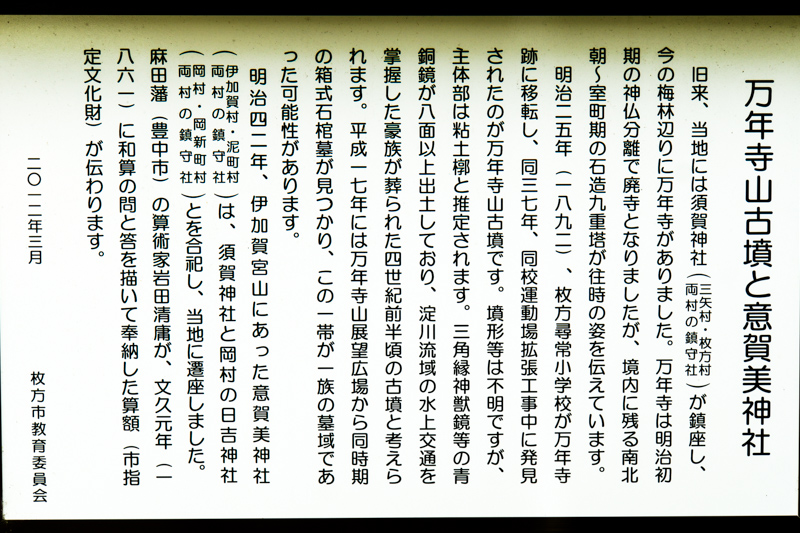 万年寺山古墳と意賀美神社
旧来、当地には須賀神社(三矢村・枚方村両村の鎮守社)が鎮座し、
今の梅林辺りに万年寺がありました。万年寺は明治初
期の神仏分離で廃寺となりましたが、境内に残る南北
朝~室町期の石造九重塔が往時の姿を伝えています。
明治二五年(一八九二)、枚方尋常小学校が万年寺
跡に移転し、同三七年、同校運動場拡張工事中に発見
されたのが万年寺山古墳です。墳形等は不明ですが、
主体部は粘土槨と推定されます。三角縁神獣鏡等の青
銅鏡が八面以上出土しており、淀川流域の水上交通を
掌握した豪族が葬られた四世紀前半頃の古墳と考えら
れます。平成一七年には万年寺山展望広場から同時期
の箱式石棺墓が見つかり、この一帯が一族の墓域であ
った可能性があります。
明治四二年、伊加賀宮山にあった意賀美神社
(伊加賀村・泥町村両村の鎮守社)は、須賀神社と岡村の日吉神社
(岡村・岡新町村両村の鎮守社)とを合祀し、当地に遷座しました。
麻田藩(豊中市)の算術家岩田清庸が、文久元年(一
八六一)に和算の問と答を描いて奉納した算額(市指
定文化財)が伝わります。
二〇一二年三月
枚方市教育委員会